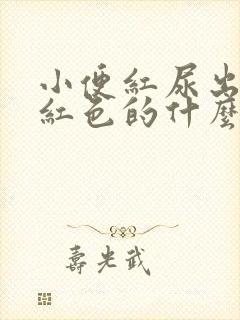 小便紅尿出
紅色的什麼
壽光武